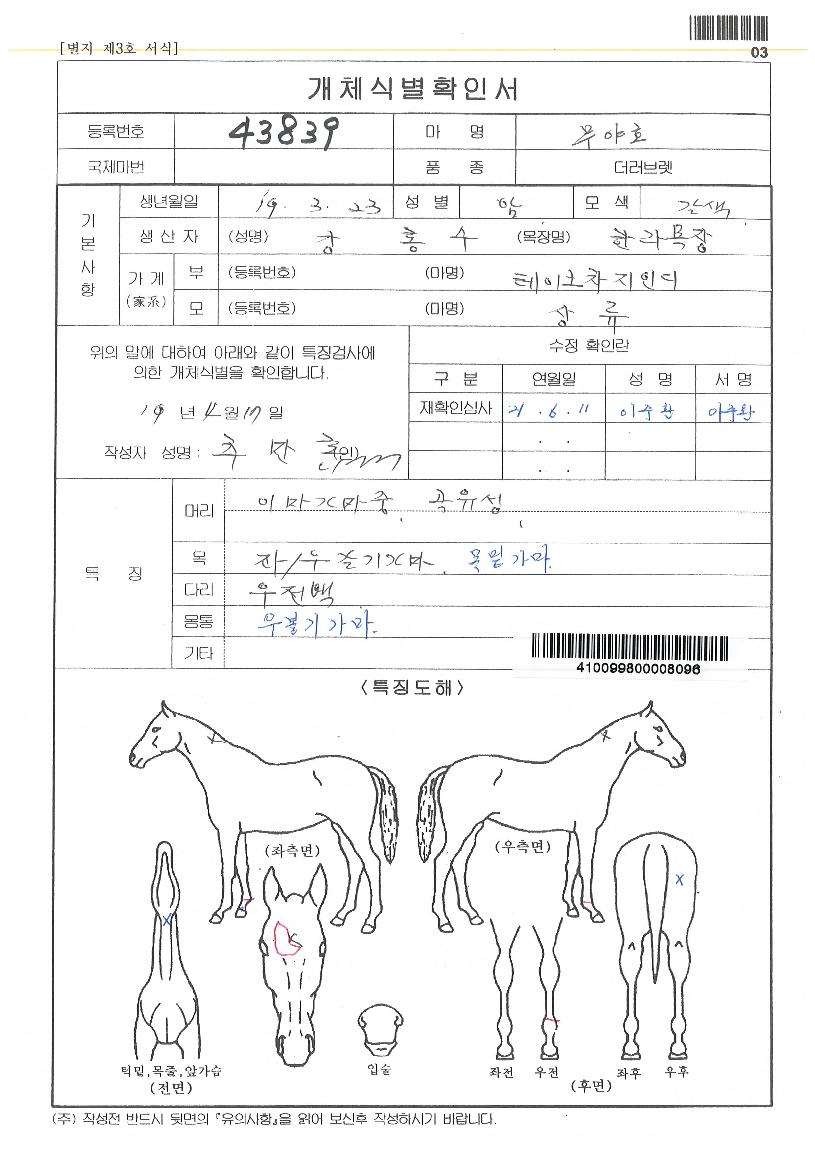 [별지 제3호 서식]
03
개체식별확인서
등록번호 43839 마 명 무야호
국제마번 품 종 더러브렛
기본사항
생년월일 19. 3. 23 성 별 암 모 색 갈색
생 산 자 (성명) 강 홍 수 (목장명) 한라목장
가 계 (家系) 부 (등록번호) (마명) 테이크차지인디
모 (등록번호) (마명) 상 류
위의 말에 대하여 아래와 같이 특징검사에
의한 개체식별을 확인합니다.
19 년 4 월 17 일
작성자 성명 : (인)
수정 확인란
구 분 연월일 성 명 서 명
재확인심사 21 . 6 . 11 이주환 이주환
. .
. .
특 징
머리 이마가마중, 곡유성,
목 좌/우줄기가마, 목밑가마.
다리 우전백
몸통 우볼기가마.
기타
410099800008096
<특징도해>
(좌측면) (우측면)
턱밑,목줄,앞가슴
(전면)
입술
좌전 우전 좌후 우후
(후면)
(주) 작성전 반드시 뒷면의 『유의사항』을 읽어 보신후 작성하시기 바랍니다.